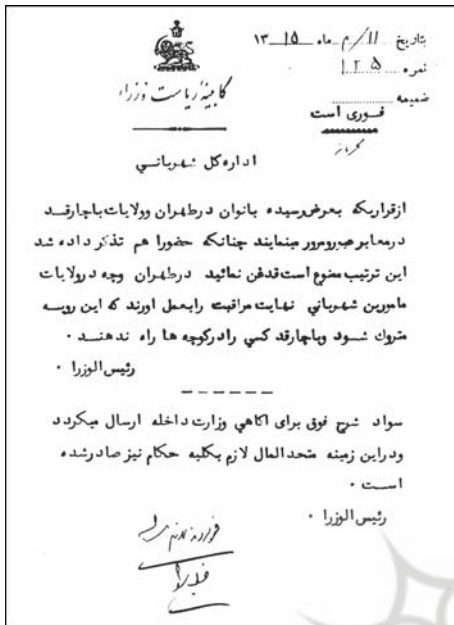 بتاریخ ۱۱/م ماه ۱۳۱۵
نمره ۱۲۵
ضمیمه
کابینهٔ ریاست وزراء
فوری است
اداره کل شهربانی
ازقراریکه بعرض رسیده بانوان درطهران وولایات باچارقد
درمعابر عبورومرور مینمایند چنانکه حضورا هم تذکر داده شد
این ترتیب ممنوع است قدقن نمائید درطهران وچه درولایات
مامورین شهربانی نهایت مراقبت رابعمل اورند که این رویه
متروک شود وباچارقد کسی رادرکوچه ها راه ندهند ۰
رئیس الوزرا ۰
سواد شرح فوق برای اکاهی وزارت داخله ارسال میکردد
ودراین زمینه متحدالمال لازم بکلیه حکام نیز صادرشده
است ۰
رئیس الوزرا ۰